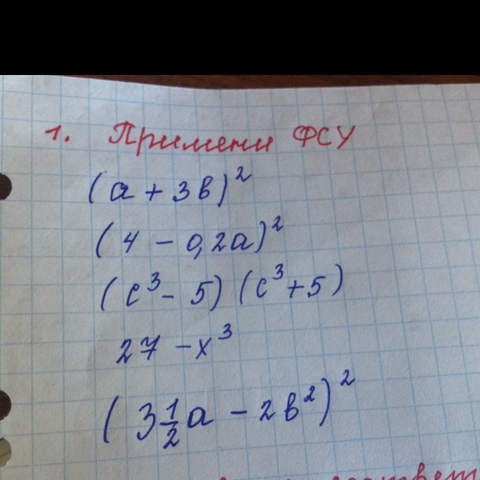 1. Примени ФСУ
(a + 3b)²
(4 - 0,2a)²
(c³ - 5) (c³ + 5)
27 - x³
(3½a - 2b²)²